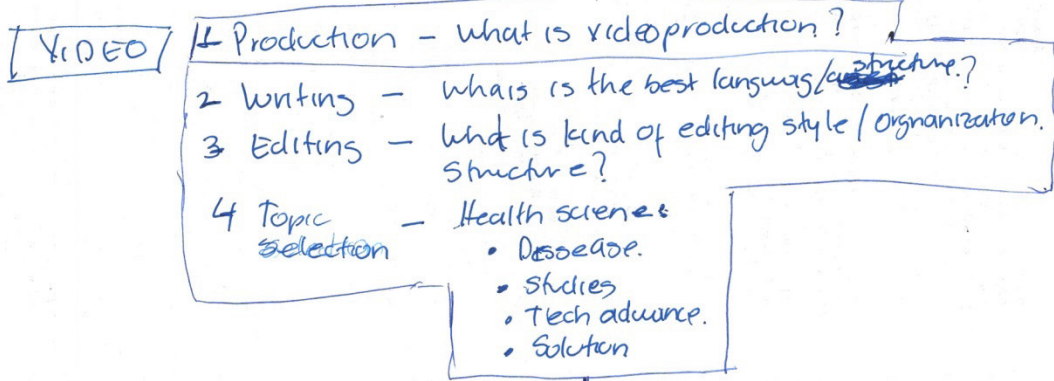 VIDEO
1 Production - What is videoproduction?
2 Writing - Whais is the best languag/structure.?
3 Editing - What is kind of editing style / Orgnanization.
structure?
4 Topic - Health science
selection
• Dessease.
• Studies
• Tech advance.
• Solution